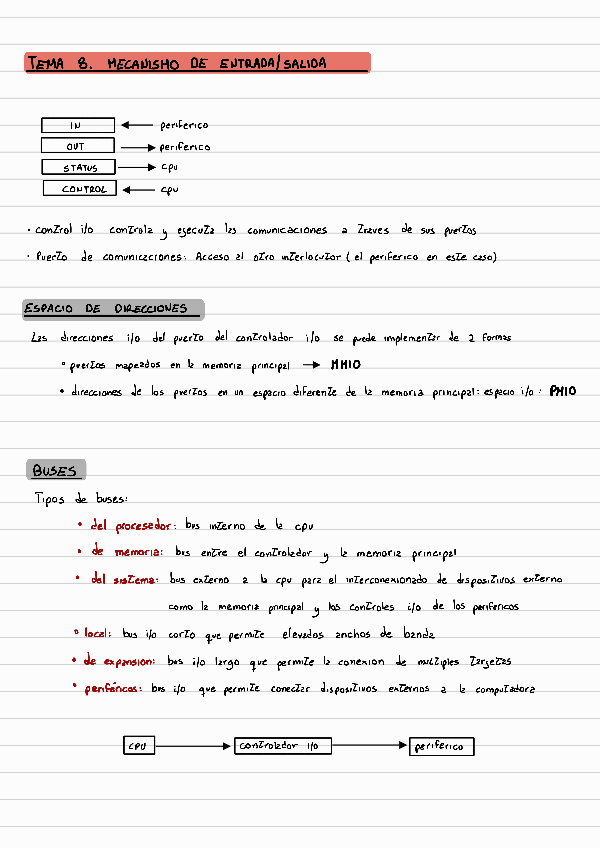 TEMA 8. MECANISMO DE ENTRADA/SALIDA
IN ← periferico
OUT → periferico
STATUS → cpu
CONTROL ← cpu
· control i/o controla y ejecuta las comunicaciones a traves de sus puertos
· Puerto de comunicaciones: Acceso al otro interlocutor (el periferico en este caso)
ESPACIO DE DIRECCIONES
Las direcciones i/o del puerto del controlador i/o se puede implementar de 2 formas
• puertos mapeados en la memoria principal → MMIO
• direcciones de los puertos en un espacio diferente de la memoria principal: espacio i/o: PMIO
BUSES
Tipos de buses:
• del procesador: bus interno de la cpu
• de memoria: bus entre el controlador y la memoria principal
• del sistema: bus externo a la cpu para el interconexionado de dispositivos externo
como la memoria principal y los controles i/o de los perifericos
• local: bus i/o corto que permite elevados anchos de banda
• de expansion: bus i/o largo que permite la conexion de multiples targetas
• periféricos: bus i/o que permite conectar dispositivos externos a la computadora
CPU → controlador i/o → periferico